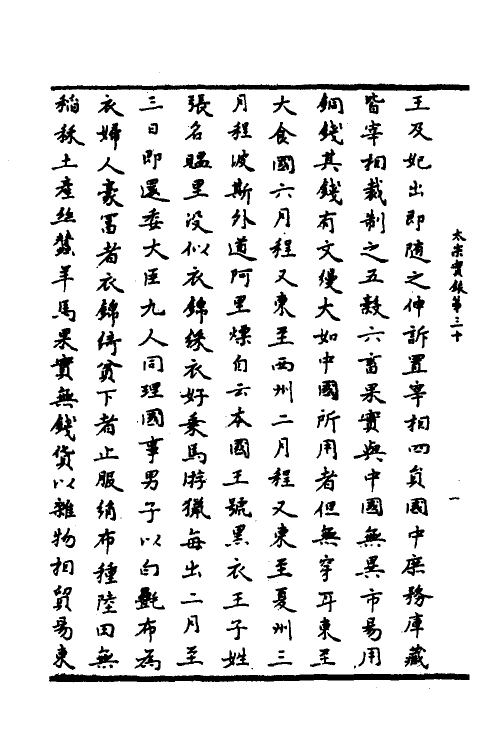 太宗實錄第三十
一
王及妃出即隨之伸訴置宰相四貟國中庶務庫藏
皆宰相裁制之五穀六畜果實與中國無異市易用
銅錢其錢有文縵大如中國所用者但無穿耳東至
大食國六月程又東至西州二月程又東至夏州三
月程波斯外道阿里煙自云本國王號黑衣王子姓
張名哩里没似衣錦綵衣好乗馬游獵每出二月至
三日即還委大臣九人同理國事男子以白㲲布為
衣婦人豪冨者衣錦綺貧下者止服絹布種陸田無
稲秫土產絲蠶羊馬果實無錢貨以雜物相貿易東